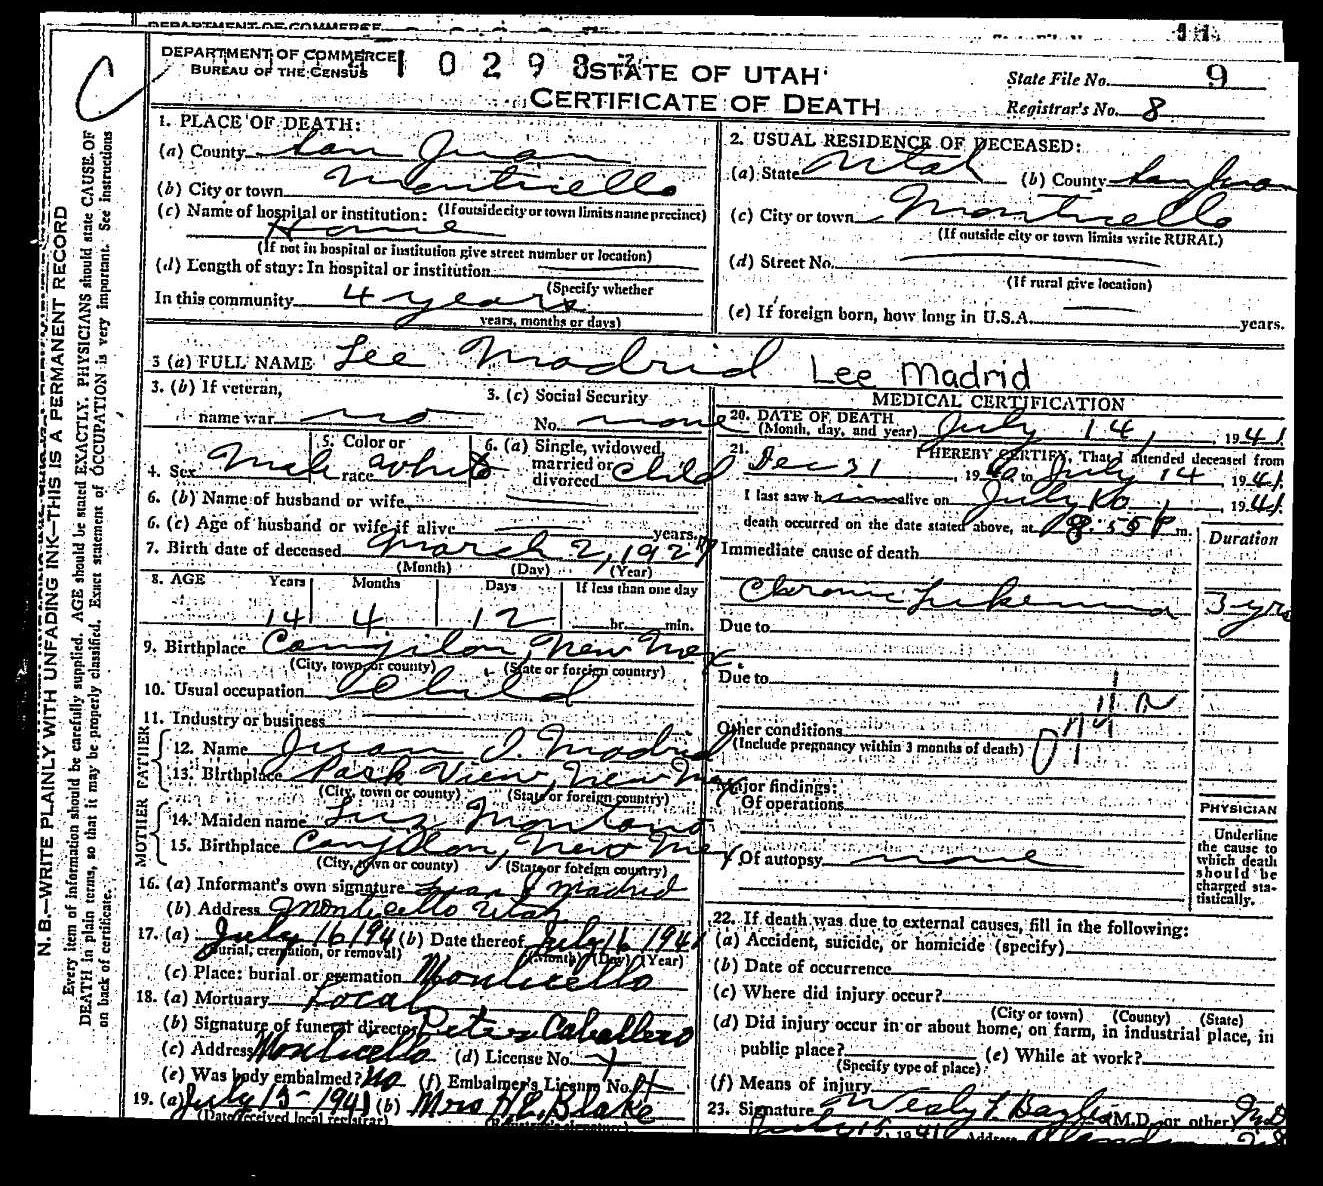 DEPARTMENT OF COMMERCE
DEPARTMENT OF COMMERCE
BUREAU OF THE CENSUS
10298
STATE OF UTAH
CERTIFICATE OF DEATH
State File No. 9
Registrar's No. 8
N. B.—WRITE PLAINLY WITH UNFADING INK—THIS IS A PERMANENT RECORD
Every item of information should be carefully supplied. AGE should be stated EXACTLY. PHYSICIANS should state CAUSE OF
DEATH in plain terms, so that it may be properly classified. Exact statement of OCCUPATION is very important. See instructions
on back of certificate.
1. PLACE OF DEATH:
(a) County San Juan
(b) City or town Monticello
(If outside city or town limits name precinct)
(c) Name of hospital or institution:
Home
(If not in hospital or institution give street number or location)
(d) Length of stay: In hospital or institution
(Specify whether
In this community 4 years
years, months or days)
2. USUAL RESIDENCE OF DECEASED:
(a) State Utah (b) County San Juan
(c) City or town Monticello
(If outside city or town limits write RURAL)
(d) Street No.
(If rural give location)
(e) If foreign born, how long in U.S.A. years.
3 (a) FULL NAME Lee Madrid Lee Madrid
3. (b) If veteran,
name war no
3. (c) Social Security
No. none
4. Sex Male
5. Color or
race white
6. (a) Single, widowed
married or
divorced Child
6. (b) Name of husband or wife
6. (c) Age of husband or wife if alive years.
7. Birth date of deceased March 2, 1927
(Month) (Day) (Year)
8. AGE Years Months Days If less than one day
14 4 12 hr. min.
9. Birthplace Canjilon, New Mex.
(City, town, or county) (State or foreign country)
10. Usual occupation Child
11. Industry or business
FATHER
12. Name Juan J. Madrid
13. Birthplace Park View, New Mex
(City, town or county) (State or foreign country)
MOTHER
14. Maiden name Luz Montano
15. Birthplace Canjilon, New Mex
(City, town or county) (State or foreign country)
16. (a) Informant's own signature Juan J Madrid
(b) Address Monticello Utah
17. (a) July 16 194 (b) Date thereof July 16 1941
(Burial, cremation, or removal) (Month) (Day) (Year)
(c) Place: burial or cremation Monticello
18. (a) Mortuary Local
(b) Signature of funeral director Peter Caballero
(c) Address Monticello (d) License No.
(e) Was body embalmed? No (f) Embalmer's License No.
19. (a) July 15-1941 (b) Mrs H.E. Blake
(Date received local registrar) (Registrar's signature)
MEDICAL CERTIFICATION
20. DATE OF DEATH
(Month, day, and year) July 14, 1941
21. I HEREBY CERTIFY, That I attended deceased from
Dec 31, 1940 to July 14, 1941
I last saw him alive on July 10, 1941
death occurred on the date stated above, at 8:55 P m.
Immediate cause of death Duration
Chronic Lukemia 3 yrs
Due to
Due to
Other conditions
(Include pregnancy within 3 months of death)
Major findings:
Of operations
Of autopsy none
PHYSICIAN
Underline
the cause to
which death
should be
charged sta-
tistically.
22. If death was due to external causes, fill in the following:
(a) Accident, suicide, or homicide (specify)
(b) Date of occurrence
(c) Where did injury occur?
(City or town) (County) (State)
(d) Did injury occur in or about home, on farm, in industrial place, in
public place? (e) While at work?
(Specify type of place)
(f) Means of injury
23. Signature (M.D. or other) MD
July 15, 1941 Address